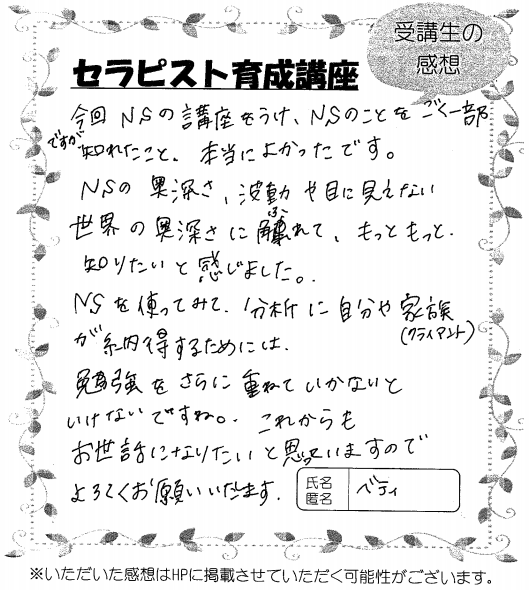 受講生の
感想
セラピスト育成講座
今回 NSの講座をうけ、NSのことを ごく一部
ですが 知れたこと、本当によかったです。
NSの 奥深さ、波動や目に見えない
世界の奥深さに触れて、もっともっと、
ふ
知りたいと感じました。
NSを使ってみて、分析に自分や家族
(クライアント)
が納得するためには、
勉強をさらに重ねていかないと
いけないですね。これからも
お世話になりたいと思っていますので
よろしくお願いいたします。
氏名
匿名
ベティ
※いただいた感想はHPに掲載させていただく可能性がございます。